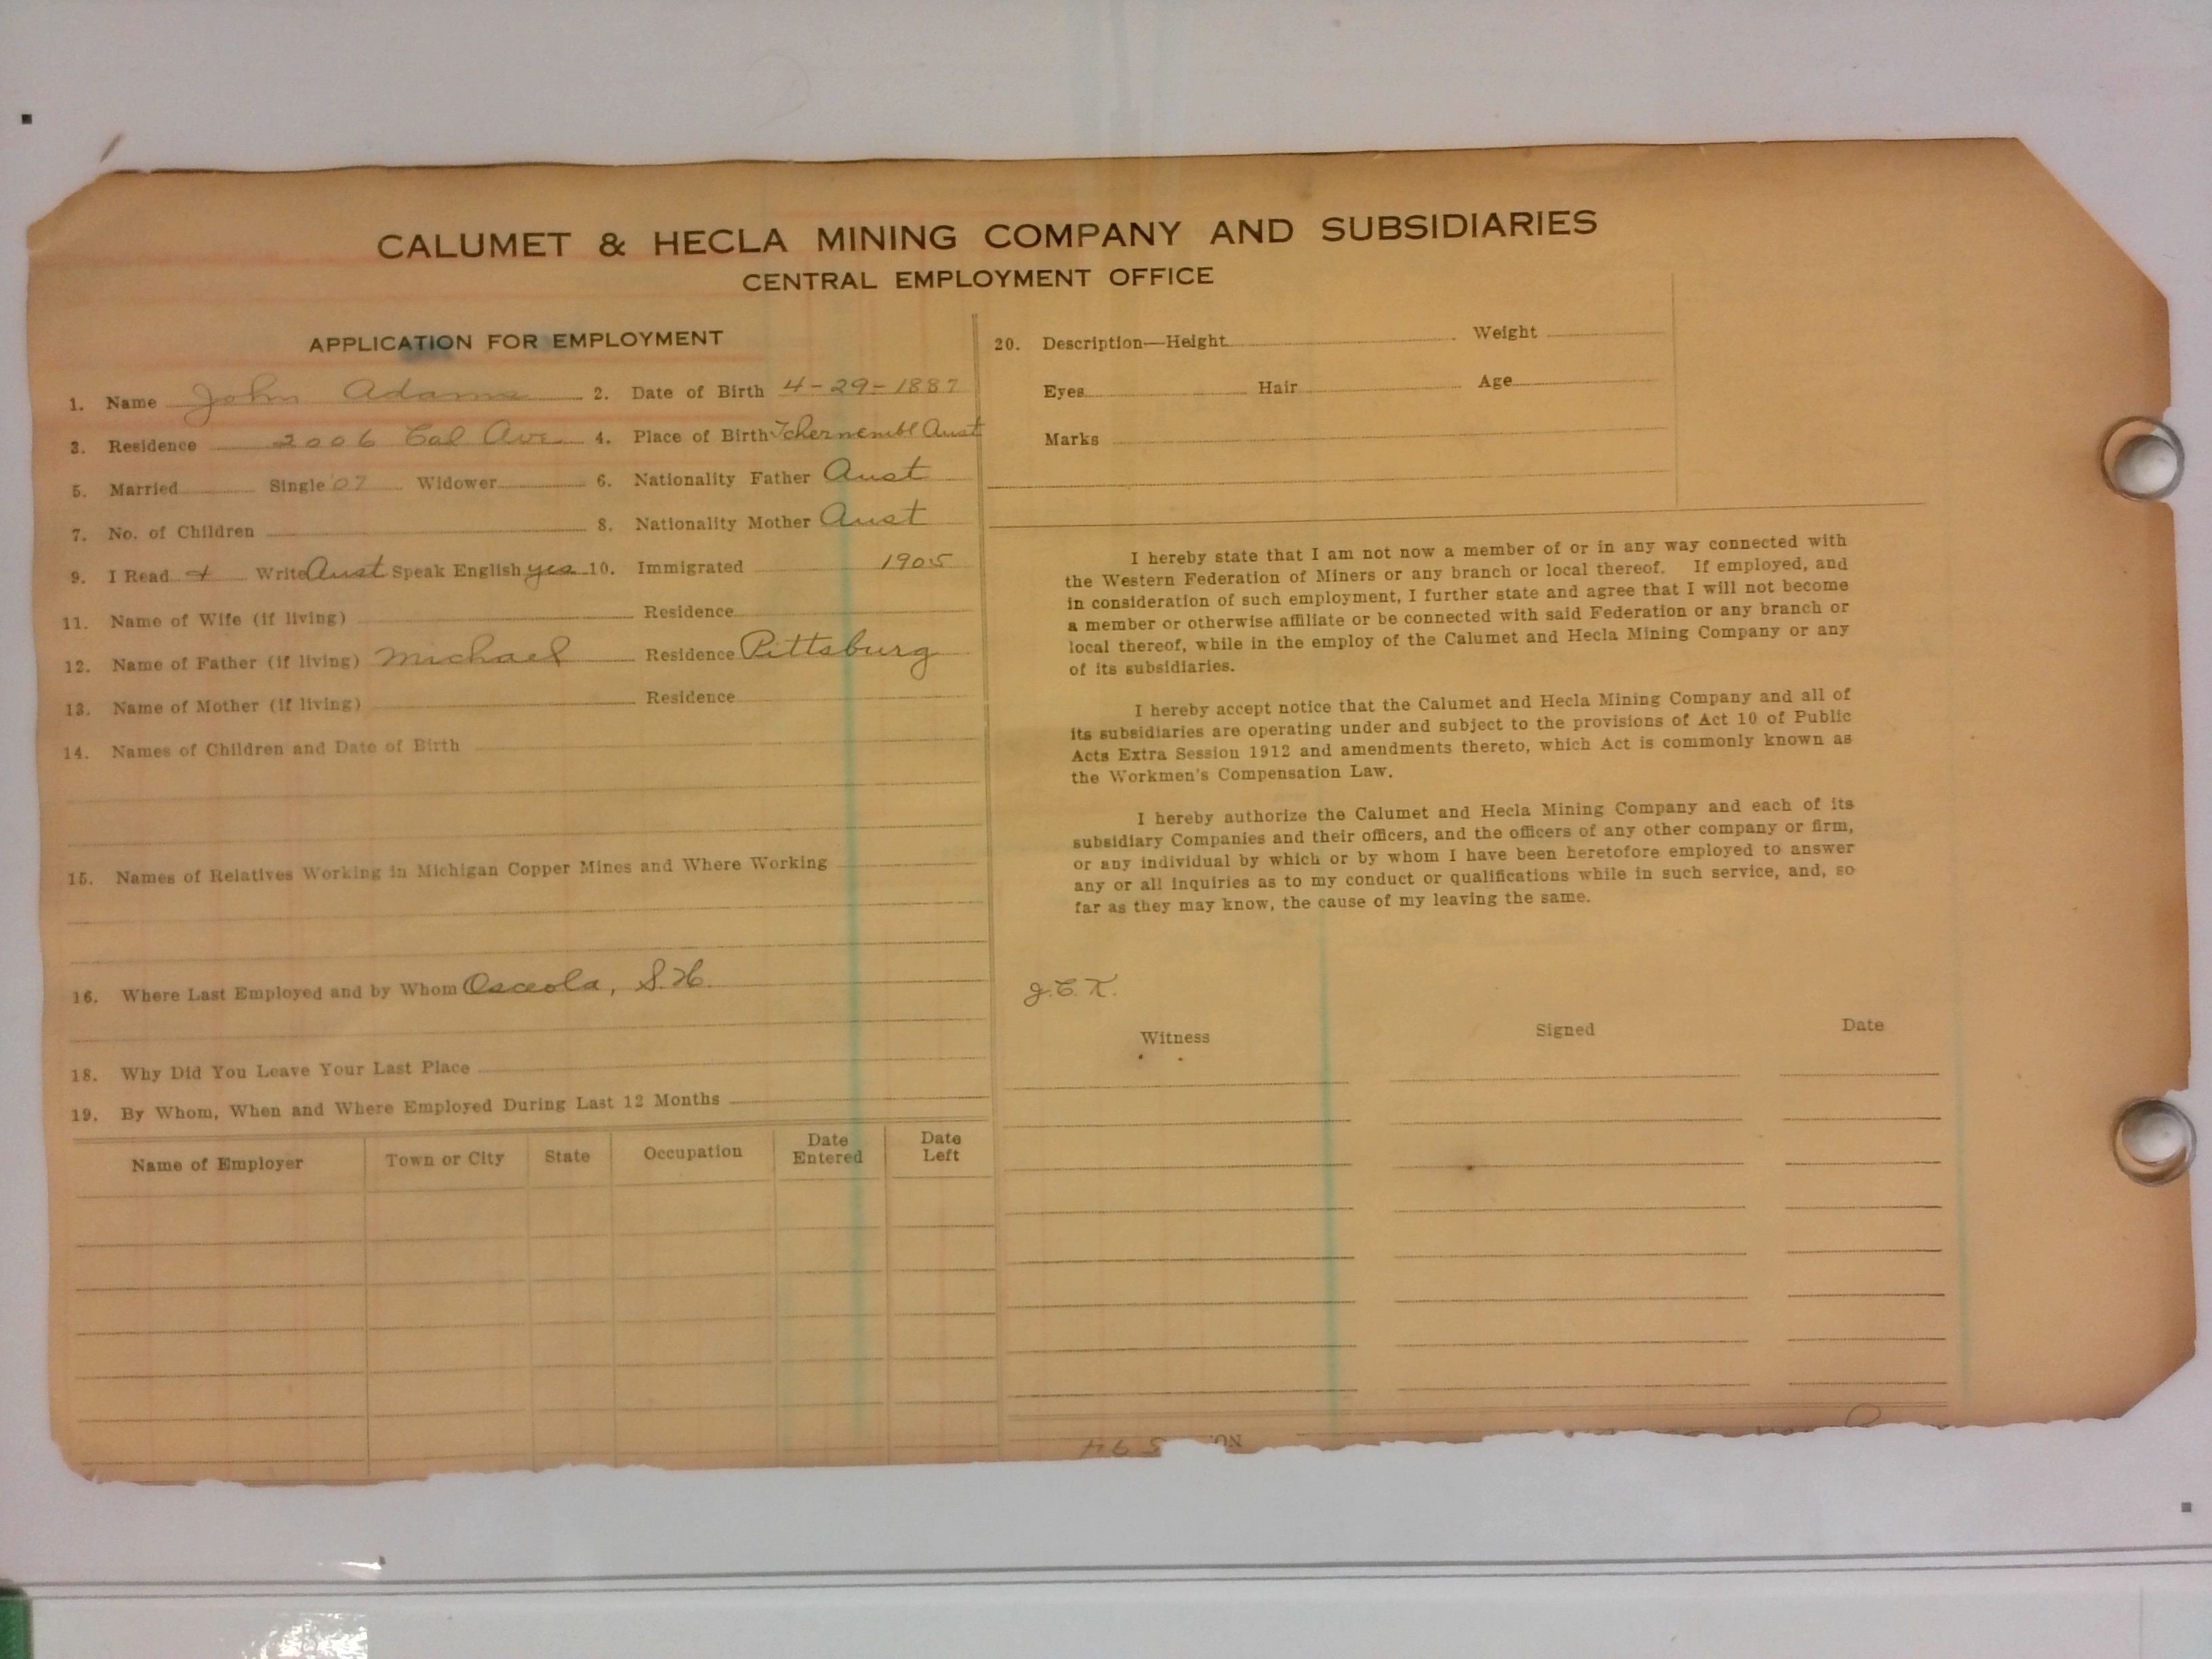 CALUMET & HECLA MINING COMPANY AND SUBSIDIARIES
CENTRAL EMPLOYMENT OFFICE
APPLICATION FOR EMPLOYMENT
1. Name John Adams 2. Date of Birth 4-29-1887
3. Residence 2006 Cal Ave 4. Place of Birth Tchernembl Aust
5. Married Single '07 Widower 6. Nationality Father Aust
7. No. of Children 8. Nationality Mother Aust
9. I Read & Write Aust Speak English yes 10. Immigrated 1905
11. Name of Wife (if living) Residence
12. Name of Father (if living) Michael Residence Pittsburg
13. Name of Mother (if living) Residence
14. Names of Children and Date of Birth
15. Names of Relatives Working in Michigan Copper Mines and Where Working
16. Where Last Employed and by Whom Osceola, S.H.
18. Why Did You Leave Your Last Place
19. By Whom, When and Where Employed During Last 12 Months
Name of Employer Town or City State Occupation Date Entered Date Left
20. Description—Height Weight
Eyes Hair Age
Marks
I hereby state that I am not now a member of or in any way connected with
the Western Federation of Miners or any branch or local thereof. If employed, and
in consideration of such employment, I further state and agree that I will not become
a member or otherwise affiliate or be connected with said Federation or any branch or
local thereof, while in the employ of the Calumet and Hecla Mining Company or any
of its subsidiaries.
I hereby accept notice that the Calumet and Hecla Mining Company and all of
its subsidiaries are operating under and subject to the provisions of Act 10 of Public
Acts Extra Session 1912 and amendments thereto, which Act is commonly known as
the Workmen's Compensation Law.
I hereby authorize the Calumet and Hecla Mining Company and each of its
subsidiary Companies and their officers, and the officers of any other company or firm,
or any individual by which or by whom I have been heretofore employed to answer
any or all inquiries as to my conduct or qualifications while in such service, and, so
far as they may know, the cause of my leaving the same.
J.C.K.
Witness Signed Date